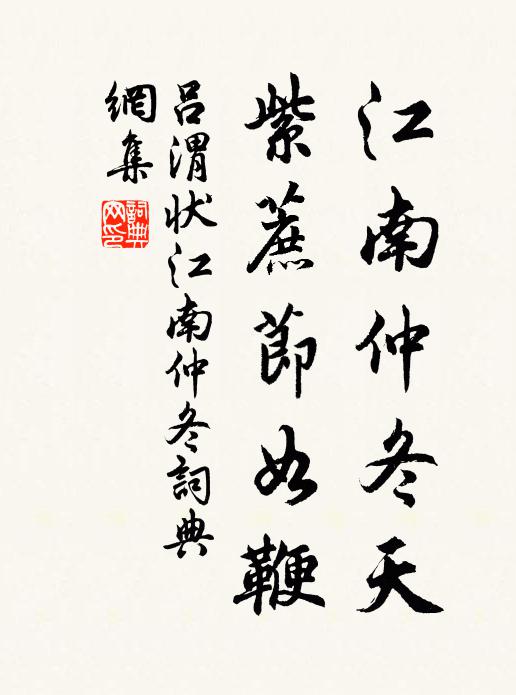 江南仲冬天
紫蔗節如鞭
吕渭状江南仲冬詞典
網集
詞典
网印